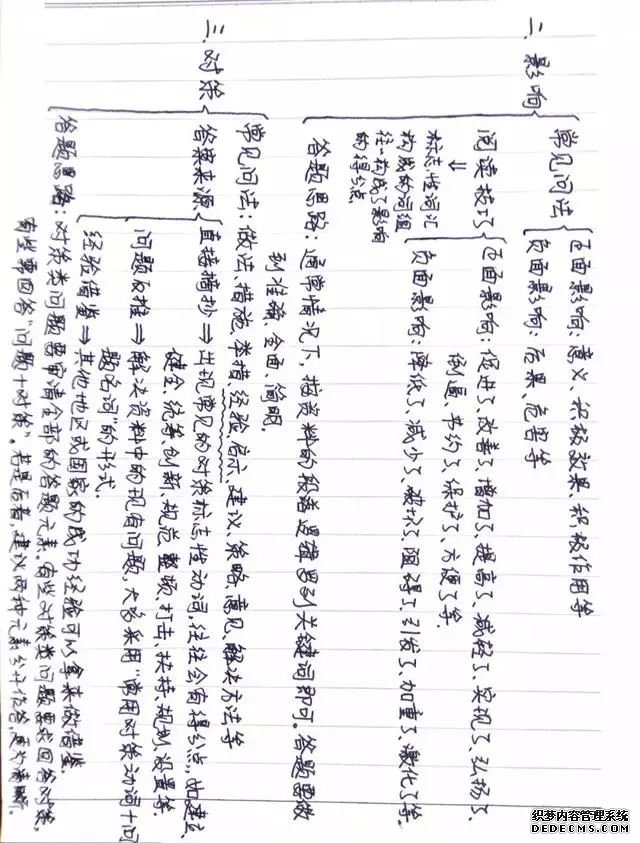 二、影响
常见问法
正面影响:意义、积极效果、积极作用等
负面影响:后果、危害等
阅读技巧
⇓
标志性词汇
构成的词组
往往构成了影响
的得分点
正面影响:促进了、改善了、增加了、提高了、减轻了、实现了、弘扬了、
倒逼、节约了、保护了、方便了等.
负面影响:降低了、减少了、破坏了、阻碍了、引发了、加重了、激化了等.
答题思路:通常情况下,按资料的段落逻辑罗列关键词即可。答题要做
到准确、全面、简明.
三、对策
常见问法:做法、措施、举措、经验、启示、建议、策略、意见、解决方法等
答案来源
直接摘抄⇒出现常见的对策标志性动词,往往会有得分点,如建立、
健全、统筹、创新、规范、整顿、打击、扶持、规划、设置等.
问题反推⇒解决资料中的现有问题,大多采用“常用对策动词+问
题名词”的形式.
经验借鉴⇒其他地区或国家的成功经验可以拿来做借鉴.
答题思路:对策类问题要审清全部的答题元素.有些对策类问题要求回答对策,
有些要回答“问题+对策”。若是后者,建议两种元素分开作答,更为清晰.
织梦内容管理系统
DEDECMS.COM